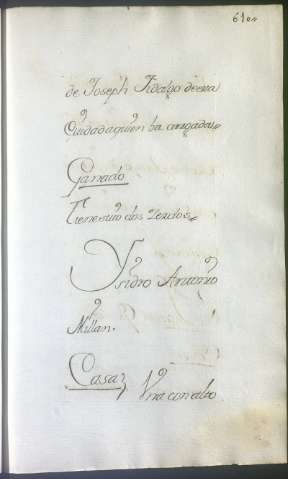 610
de Joseph Hidalgo de esta
Ciudad a quien ba cargada
Ganado
Tiene dos Zerdos
Ysidro Antonio
Millan.
Casa Una con alto